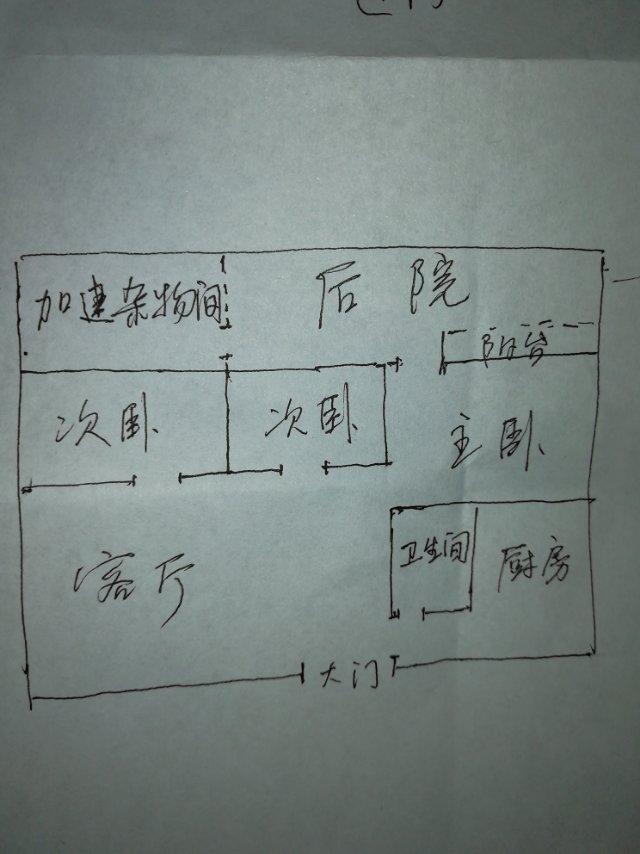 加建杂物间
后院
阳台
次卧
次卧
主卧
客厅
卫生间
厨房
大门